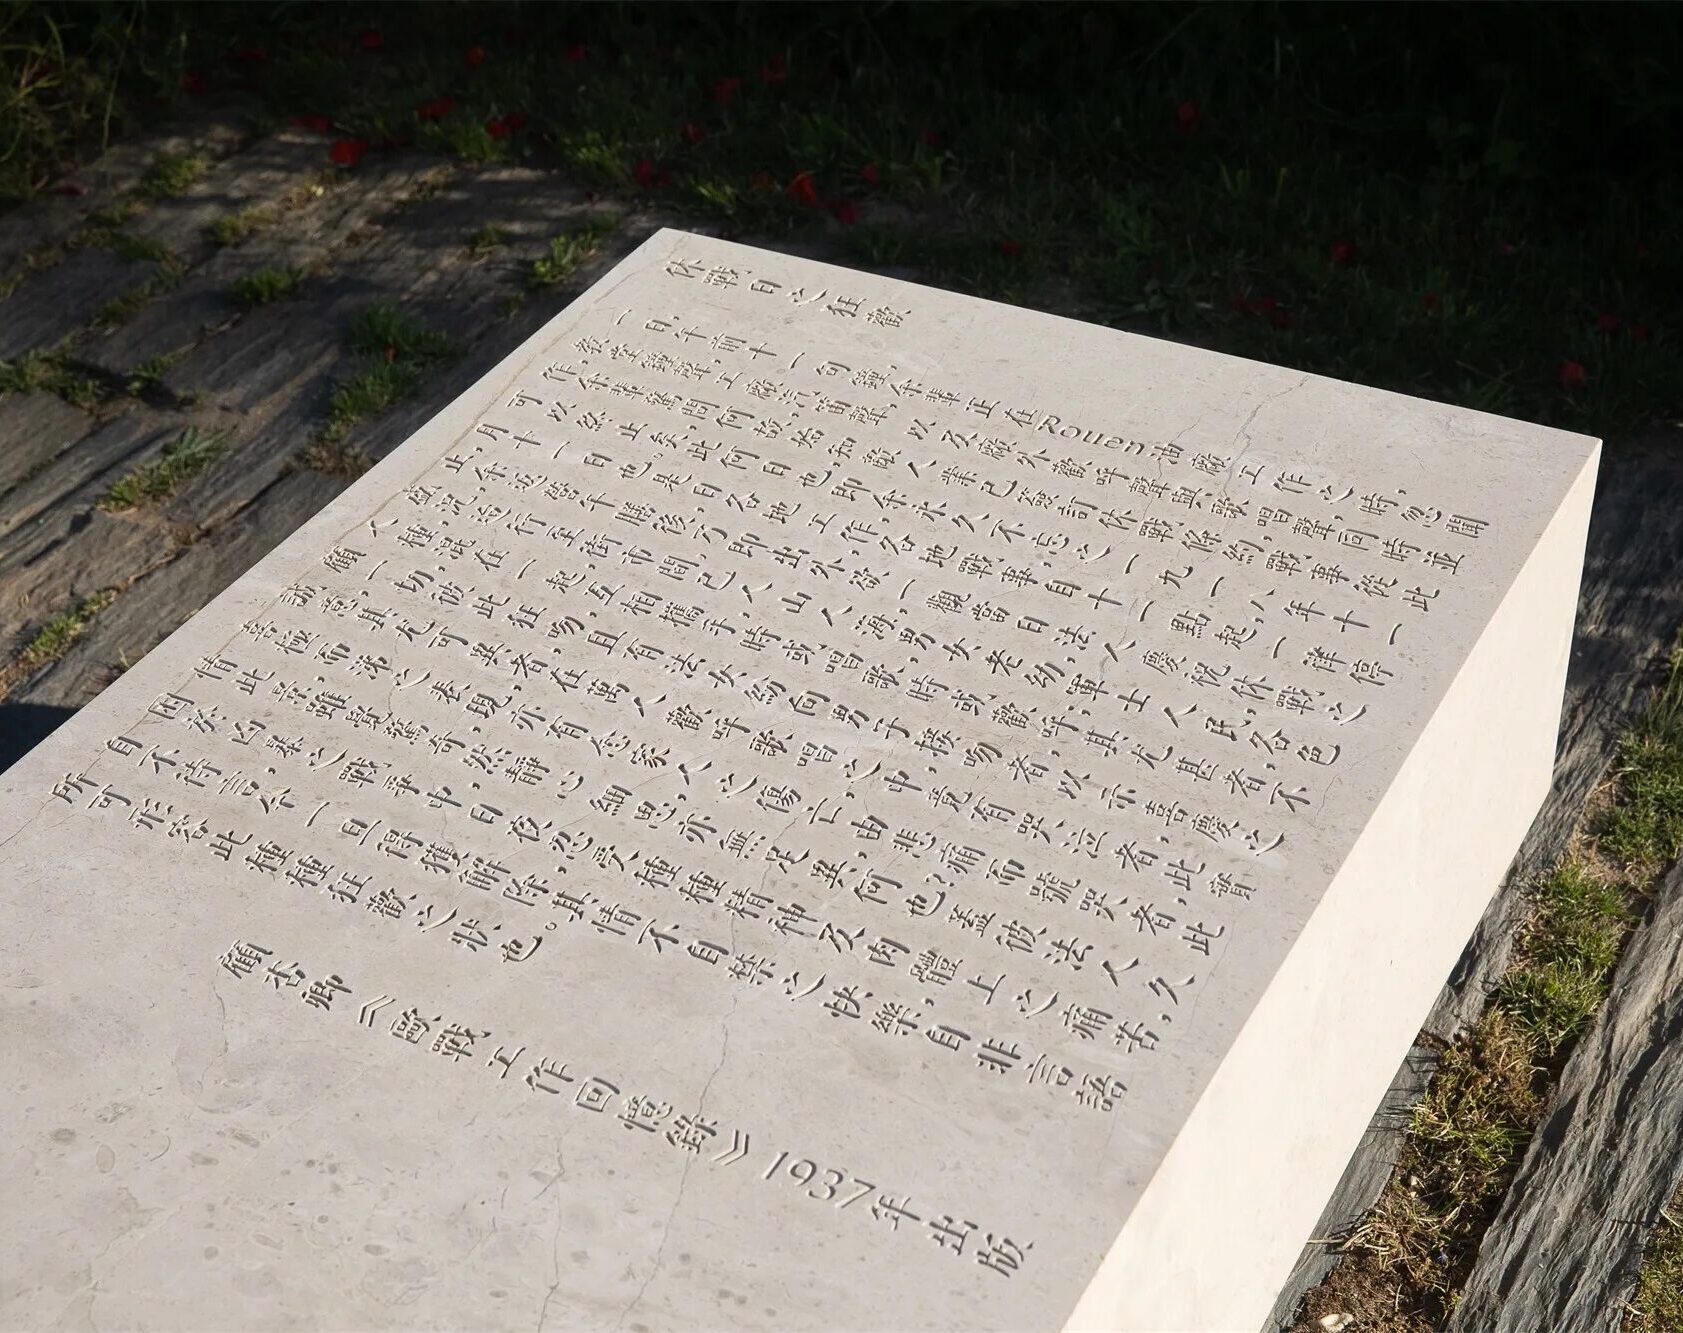 休戰日之狂歡
一日,午前十一句鐘,余輩正在Rouen油廠工作之時,忽聞
教堂鐘聲,工廠汽笛聲,以及廠外歡呼聲與歌唱聲同時並
作,余輩驚問何故,始知敵人業已簽訂休戰條約,戰事從此
可以終止矣,此何日也,即余永久不忘之一九一八年十一
月十一日也。是日各地工作,各地戰事,自十一點起,一律停
止,余午膳後,乃即出外,欲一觀當日法人慶祝休戰之
盛況,迨行至街市間,已人山人海,男女老幼,軍士人民,各色
人種,混在一起,互相攜手,時或唱歌,時或歡呼,其尤甚者,不
顧一切,彼此狂吻,且有法女紛向男子接吻者,以示喜慶之
誠意,其尤可異者,在萬人歡呼歌唱之中,竟有哭泣者,此實
喜極而涕之表現,亦有念家人之傷亡,由悲痛而號哭者,此
情此景,雖覺驚奇,然靜心細思,亦無足異,何也?蓋彼法人久
困於凶暴之戰爭中,日夜忍受種種精神及肉體上之痛苦,
自不待言,今一旦得獲解除,其情不自禁之快樂,自非言語
所可形容此種種狂歡之狀也。
顧杏卿《歐戰工作回憶錄》1937年出版